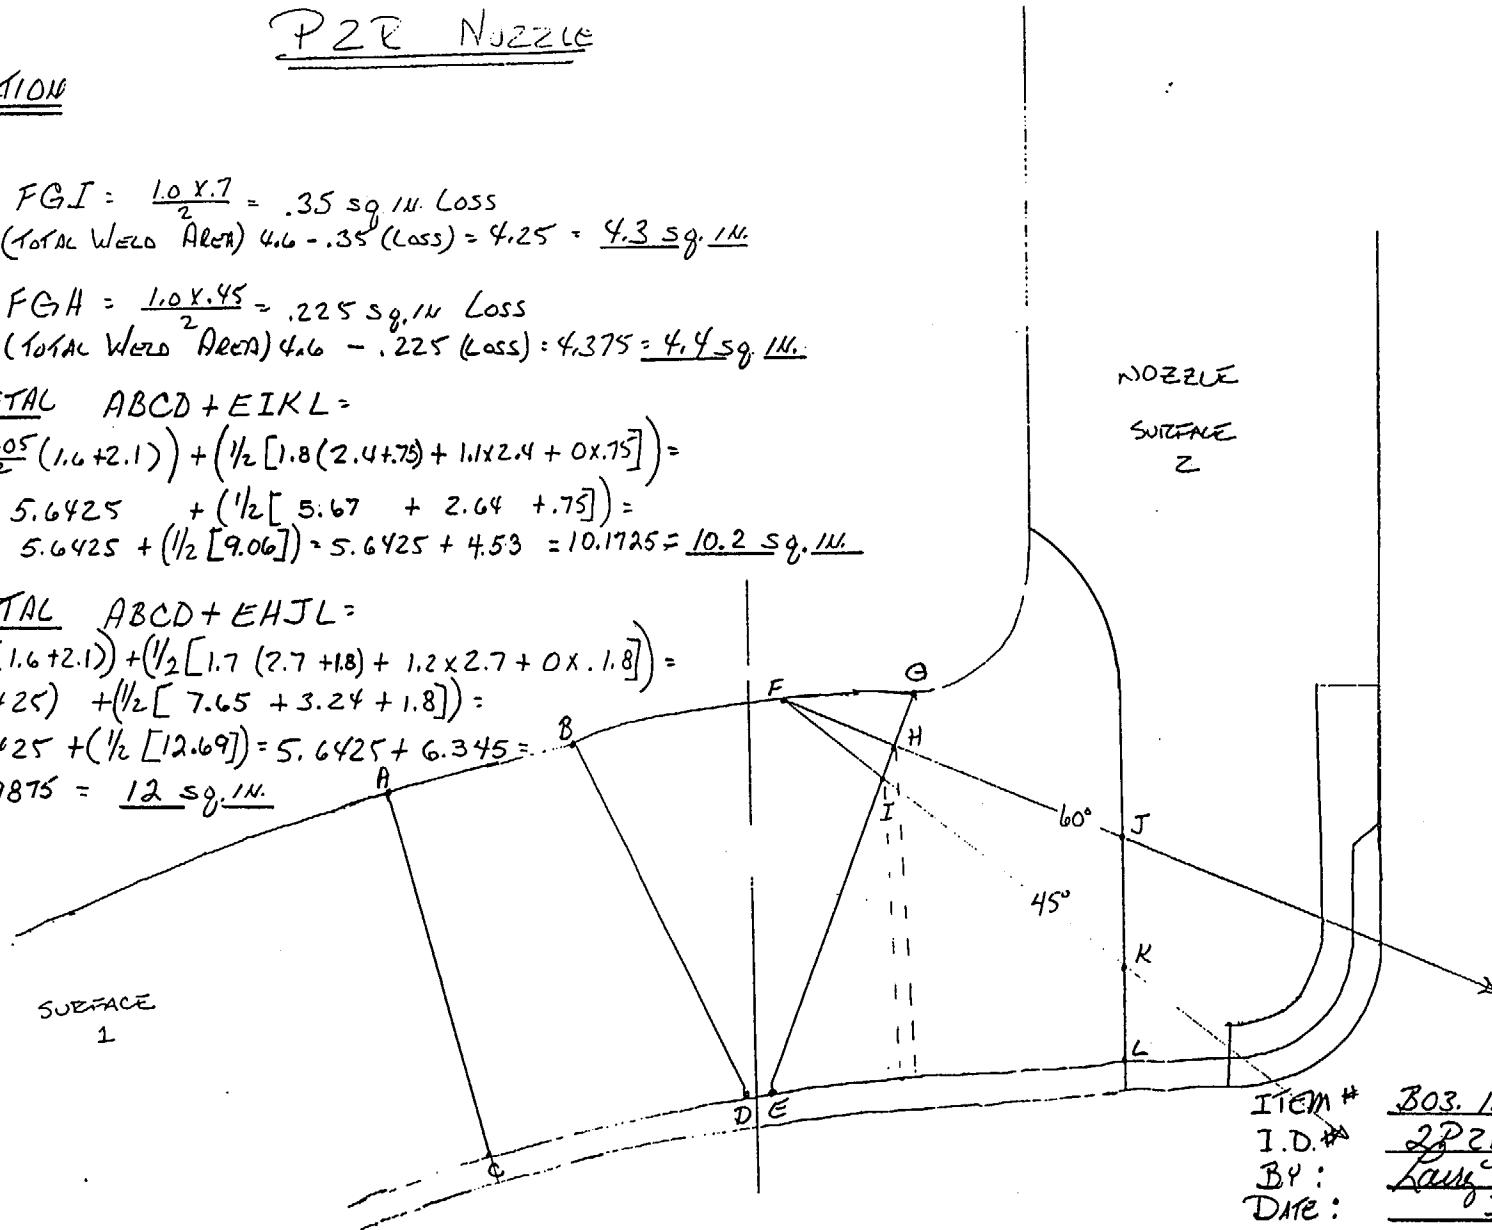 PZR NOZZLE
TION
FGI = 1.0 X .7 / 2 = .35 sq IN. LOSS
(TOTAL WELD AREA) 4.6 - .35 (LOSS) = 4.25 = 4.3 sq. IN.
FGH = 1.0 X .45 / 2 = .225 sq. IN LOSS
(TOTAL WELD AREA) 4.6 - .225 (LOSS) = 4.375 = 4.4 sq. IN.
ETAL ABCD + EIKL =
05/2 (1.6 + 2.1)) + (1/2 [1.8 (2.4+.75) + 1.1x2.4 + 0x.75]) =
5.6425 + (1/2 [ 5.67 + 2.64 + .75]) =
5.6425 + (1/2 [9.06]) = 5.6425 + 4.53 = 10.1725 = 10.2 sq. IN.
TAL ABCD + EHJL =
(1.6 + 2.1)) + (1/2 [1.7 (2.7 + 1.8) + 1.2 x 2.7 + 0x.1.8]) =
25) + (1/2 [ 7.65 + 3.24 + 1.8]) =
25 + (1/2 [12.69]) = 5.6425 + 6.345 =
9875 = 12 sq. IN.
NOZZLE
SURFACE
2
G
F
B
H
A
I
60°
J
45°
K
SURFACE
1
L
D E
C
ITEM # B03. 1
I.D. # 2PZ
BY: Larry
DATE: